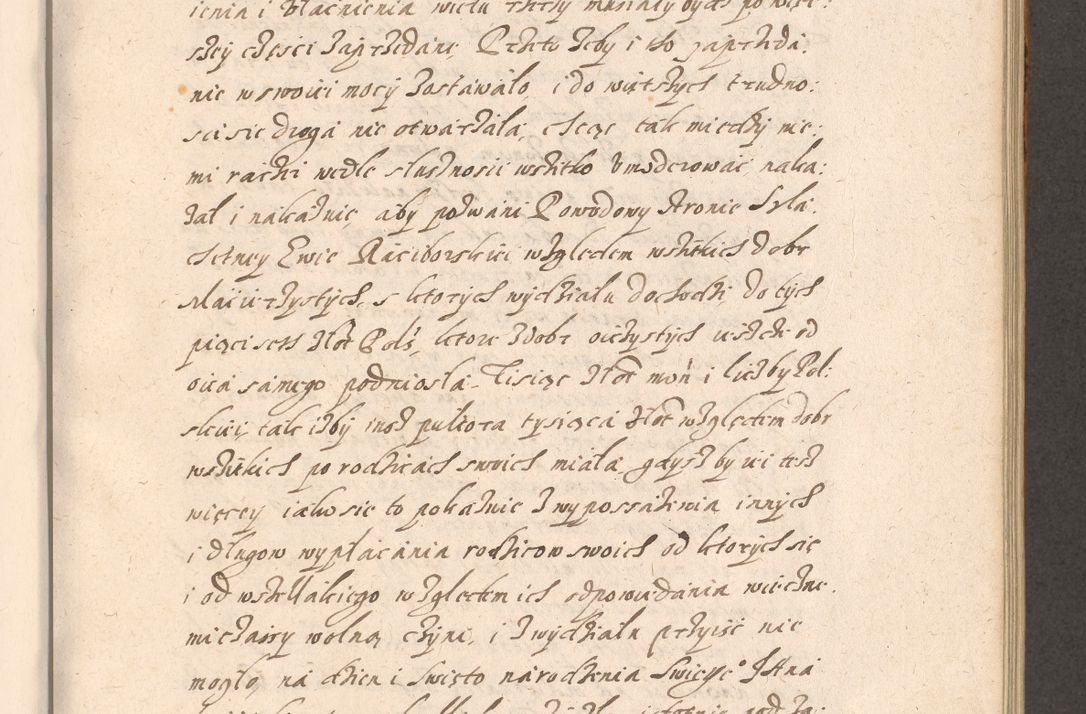 ienia i płacnienia wielu rzeczy musiały być po więc:
szey części zaprzedane, Przeto żeby i to zaprzeda,
nie w swoiei mocy zostawało, i do więtszych trudno:
sci się droga nie otwarzała, chcąc tak między nie:
mi raczei wedle słusznosci wszitko umoderować, naka:
zał i nakaznie, aby pozwani Powodowy stronie Szla,
chetney Ewie Raciborskiei względem wszitkich dobr
Macierzystych, s ktorych wydziału dochodzi, do tych
pięciset złot Pols, ktore z dobr oiczystych ieszcze od
oica samego podniosła, Tisiąc złot moń i liczby Pol:
skiei, tak iżby iusz pułtora tysiąca złot względem dobr
wszitkich po rodzicach swoich miała, gdysz by iei tesz
więcey iako się to pokaznie z wyposażenia innych
i długow wypłacania rodzicow swoich od ktorych się
i od wszellakiego względem ich odpowiadania wieczne.
mi czassy wolną czyni, i z wydziału przyiść nie
mogło, na dzien i swięto narodzenia Swięg° Jana